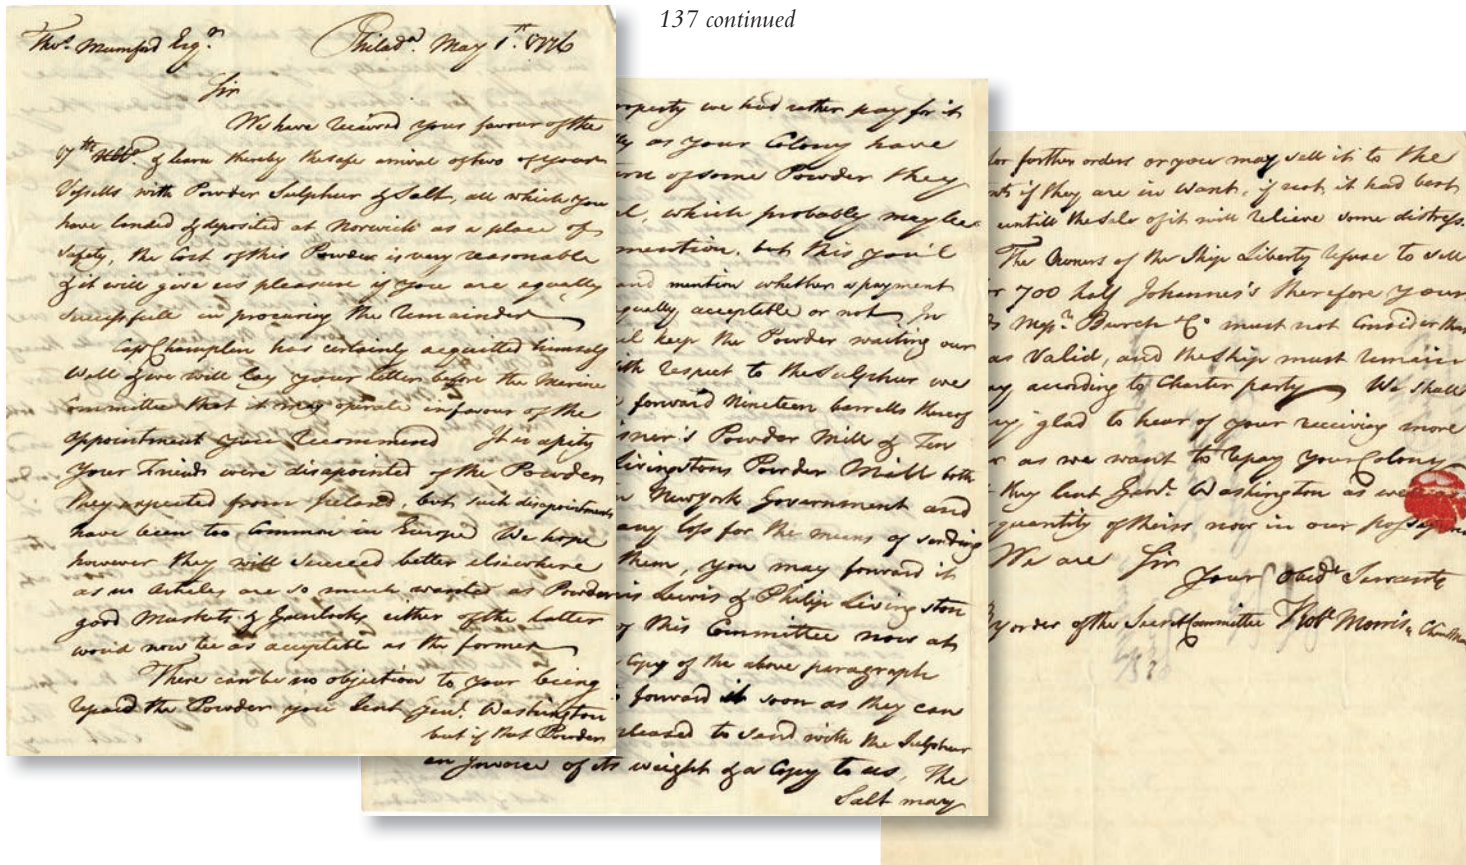 137 continued
Thos. Mumford Esqr. Philada. May 1st. 1776
Sir
We have received your favour of the
17th Ulto. & learn thereby the safe arrival of two of your
Vessells with Powder Sulphur & Salt, all which you
have landed & deposited at Norwich as a place of
safety, the Cost of this Powder is very reasonable
& it will give us pleasure if you are equally
successfull in procuring the remainder
Capt Champlin has certainly acquitted himself
well & we will lay your letter before the Marine
Committee that it may operate in favour of the
appointment you recommend It is a pity
your Friends were disapointed of the Powder
they expected from Ireland but such disapointments
have been too Common in Europe We hope
however they will succeed better elsewhere
as no Articles are so much wanted as Powder
good Muskets & Gunlocks, either of the latter
would now be as acceptable as the former
There can be no objection to your being
repaid the Powder you lent Genl. Washington
but if that Powder
property we had rather pay for it
as your Colony have
of some Powder they
which probably may be
mention. but this you'l
and mention whether a payment
equally acceptable or not In
keep the Powder waiting our
with respect to the Sulphur we
forward Nineteen barrells thereof
Powder Mill & Ten
Livingstons Powder Mill both
Newyork Government and
any loss for the means of sending
them, you may forward it
Lewis & Philip Livingston
of this Committee now at
Copy of the above paragraph
forward it soon as they can
pleased to send with the Sulphur
an Invoice of its weight & a Copy to us, The
Salt may
for further orders or you may sell it to the
if they are in want, if not it had best
untill the Sale of it will relieve some distress.
The Owners of the Ship Liberty refuse to sell
700 half Johannes's therefore your
Messrs. Burch & Co must not Consider that
as Valid, and the Ship must remain
according to Charter party We shall
glad to hear of your receiving more
as we want to repay your Colony
they lent Genl. Washington as well as
quantity of theirs now in our possession
We are Sir
Your Obedt Servants
By order of the Secret Committee Robt Morris, Chairman